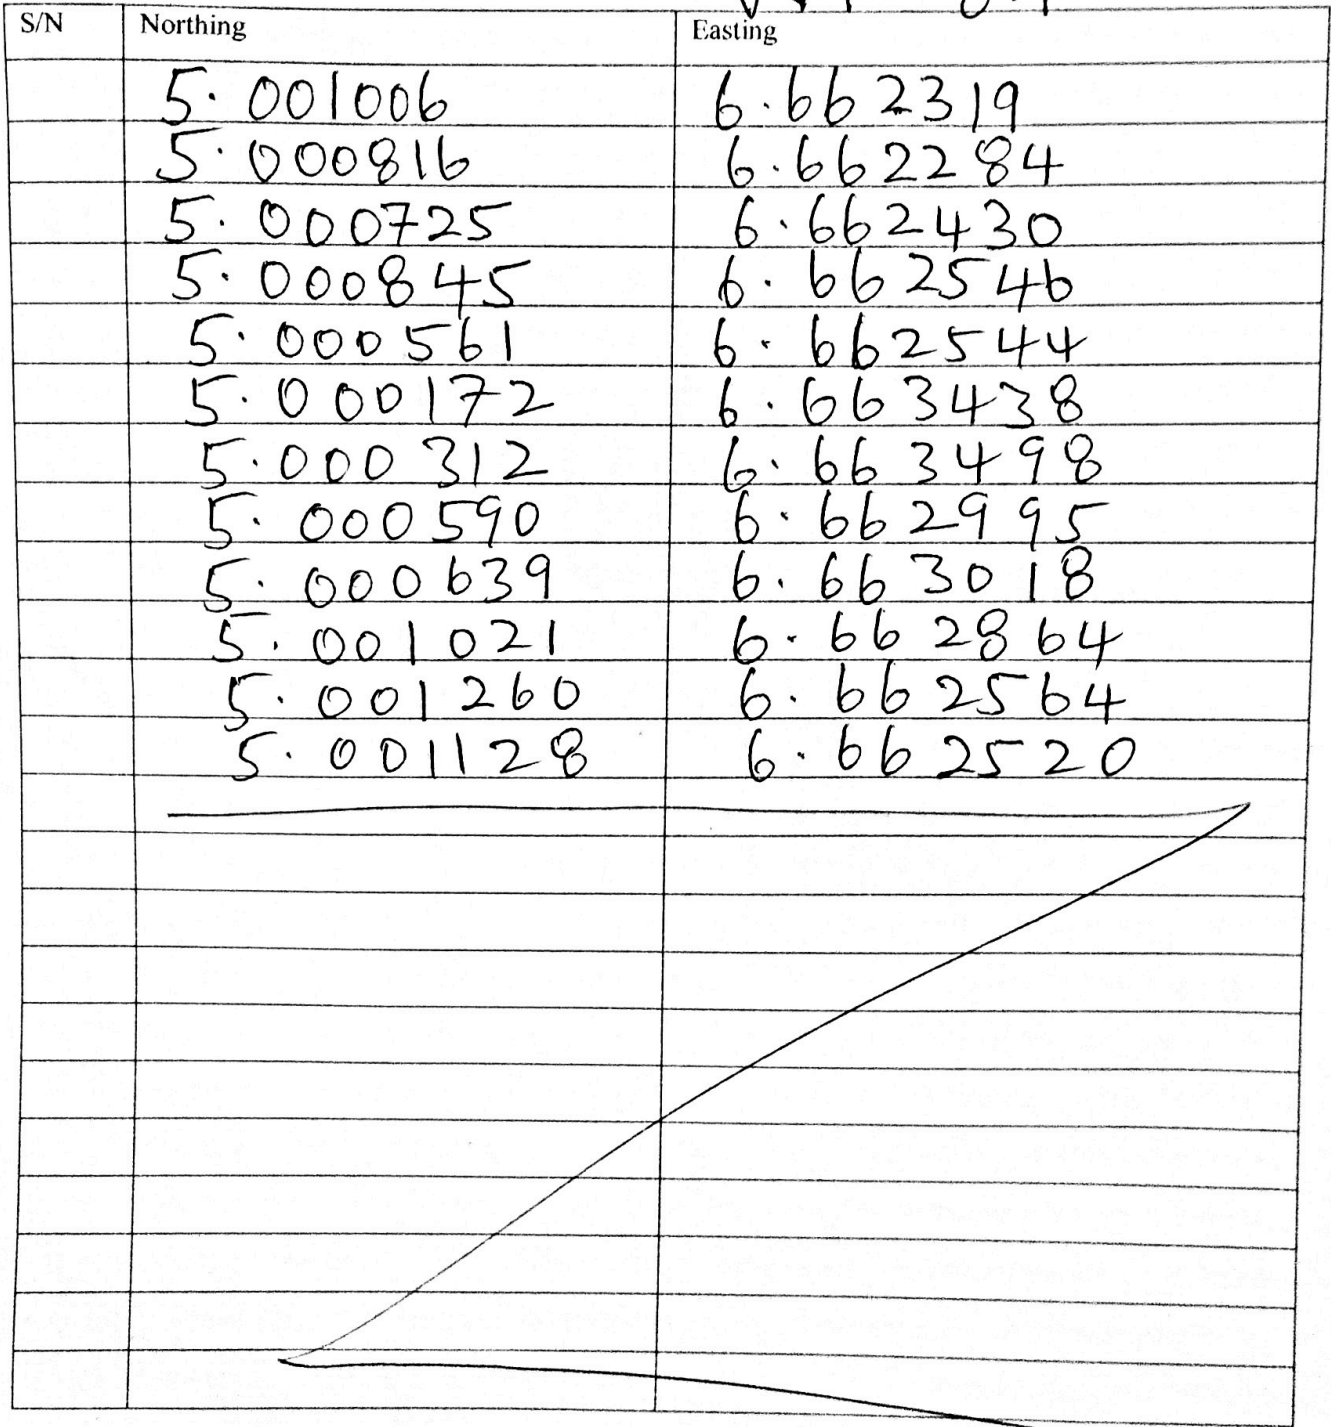 S/N Northing Easting
5.001006 6.662319
5.000816 6.662284
5.000725 6.662430
5.000845 6.662546
5.000561 6.662544
5.000172 6.663438
5.000312 6.663498
5.000590 6.662995
5.000639 6.663018
5.001021 6.662864
5.001260 6.662564
5.001128 6.662520